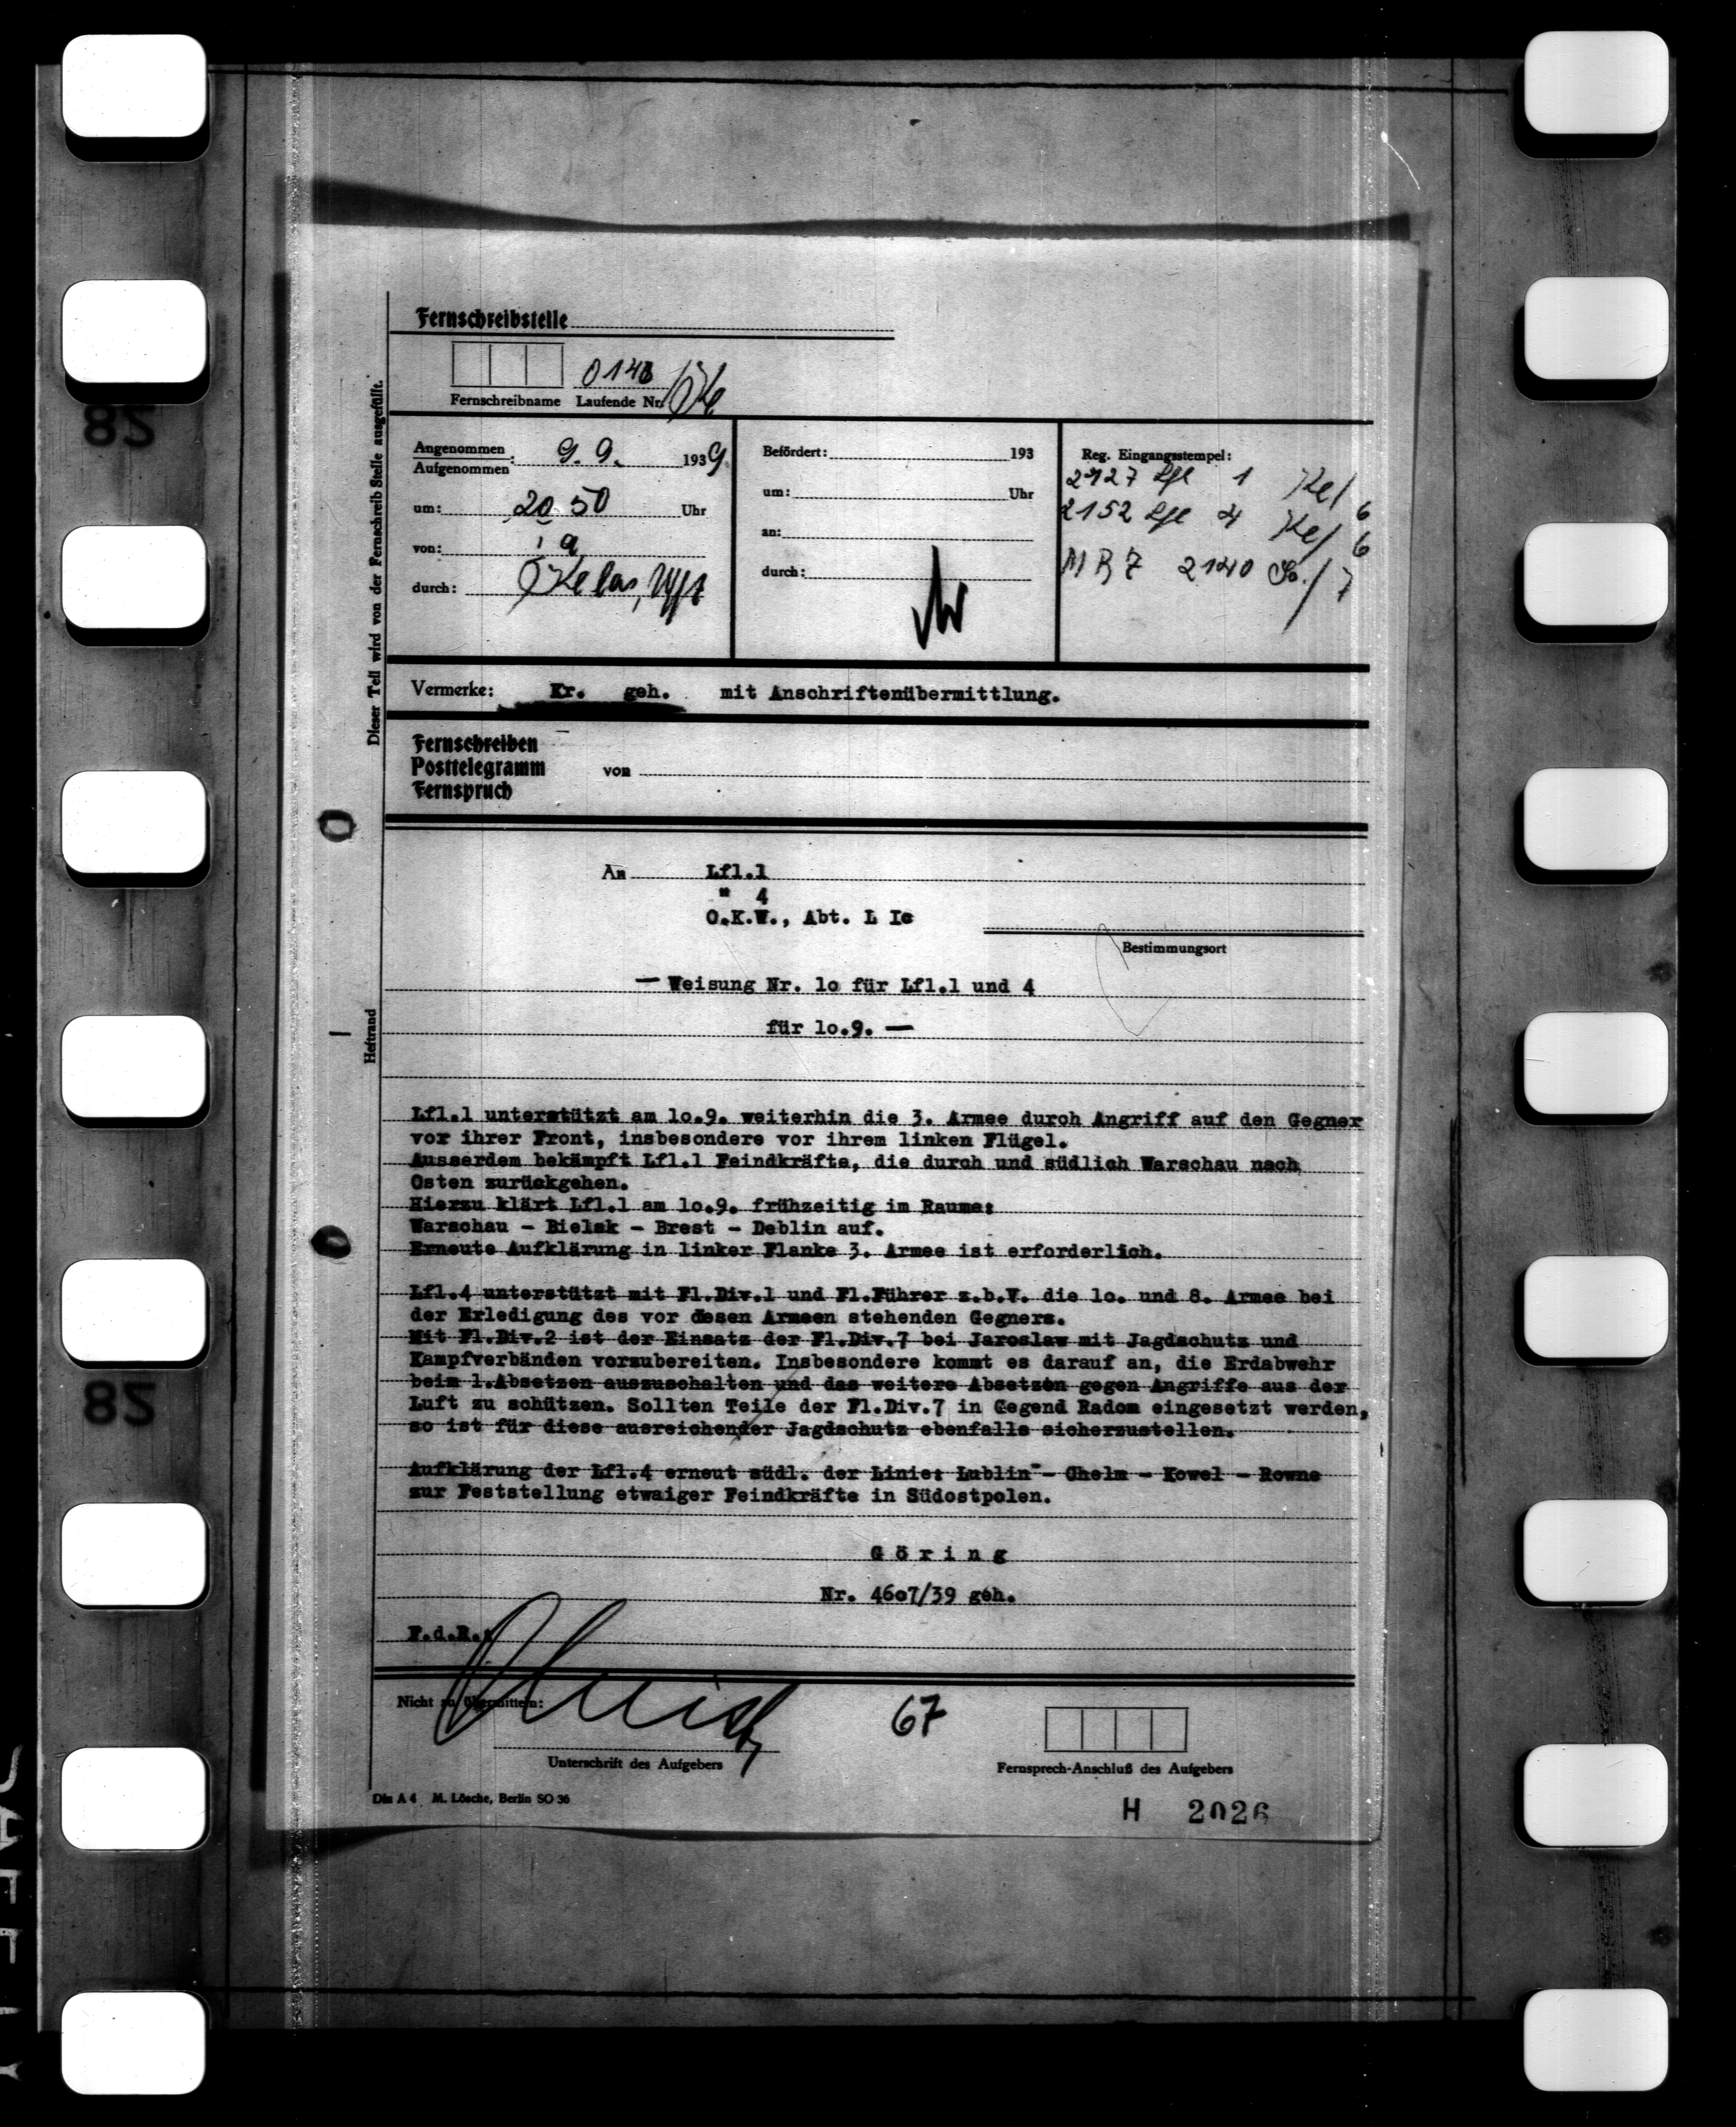 Fernschreibstelle
0148
Fernschreibname Laufende Nr.
Angenommen
Aufgenommen : 9.9. 1939
um: 20 50 Uhr
von:
durch:
Befördert: 193
um: Uhr
an:
durch:
Reg. Eingangsstempel:
2127 Lfl 1 Ke/6
2152 Lfl 4 Ke/6
2140
Dieser Teil wird von der Fernschreib Stelle ausgefüllt.
Vermerke: Kr. geh. mit Anschriftenübermittlung.
Fernschreiben
Posttelegramm von
Fernspruch
An Lfl.1
" 4
O.K.W., Abt. L Ic
Bestimmungsort
— Weisung Nr. 1o für Lfl.1 und 4
für 1o.9. —
Heftrand
Lfl.1 unterstützt am 1o.9. weiterhin die 3. Armee durch Angriff auf den Gegner
vor ihrer Front, insbesondere vor ihrem linken Flügel.
Ausserdem bekämpft Lfl.1 Feindkräfte, die durch und südlich Warschau nach
Osten zurückgehen.
Hierzu klärt Lfl.1 am 1o.9. frühzeitig im Raume:
Warschau - Bielsk - Brest - Deblin auf.
Erneute Aufklärung in linker Flanke 3. Armee ist erforderlich.
Lfl.4 unterstützt mit Fl.Div.1 und Fl.Führer z.b.V. die 1o. und 8. Armee bei
der Erledigung des vor diesen Armeen stehenden Gegners.
Mit Fl.Div.2 ist der Einsatz der Fl.Div.7 bei Jaroslaw mit Jagdschutz und
Kampfverbänden vorzubereiten. Insbesondere kommt es darauf an, die Erdabwehr
beim 1.Absetzen auszuschalten und das weitere Absetzen gegen Angriffe aus der
Luft zu schützen. Sollten Teile der Fl.Div.7 in Gegend Radom eingesetzt werden,
so ist für diese ausreichender Jagdschutz ebenfalls sicherzustellen.
Aufklärung der Lfl.4 erneut südl. der Linie: Lublin - Chelm - Kowel - Rowne
zur Feststellung etwaiger Feindkräfte in Südostpolen.
Göring
Nr. 46o7/39 geh.
F.d.R.:
Nicht zu übermitteln:
67
Unterschrift des Aufgebers
Fernsprech-Anschluß des Aufgebers
Din A 4 M. Lösche, Berlin SO 36
H 2026
82
82